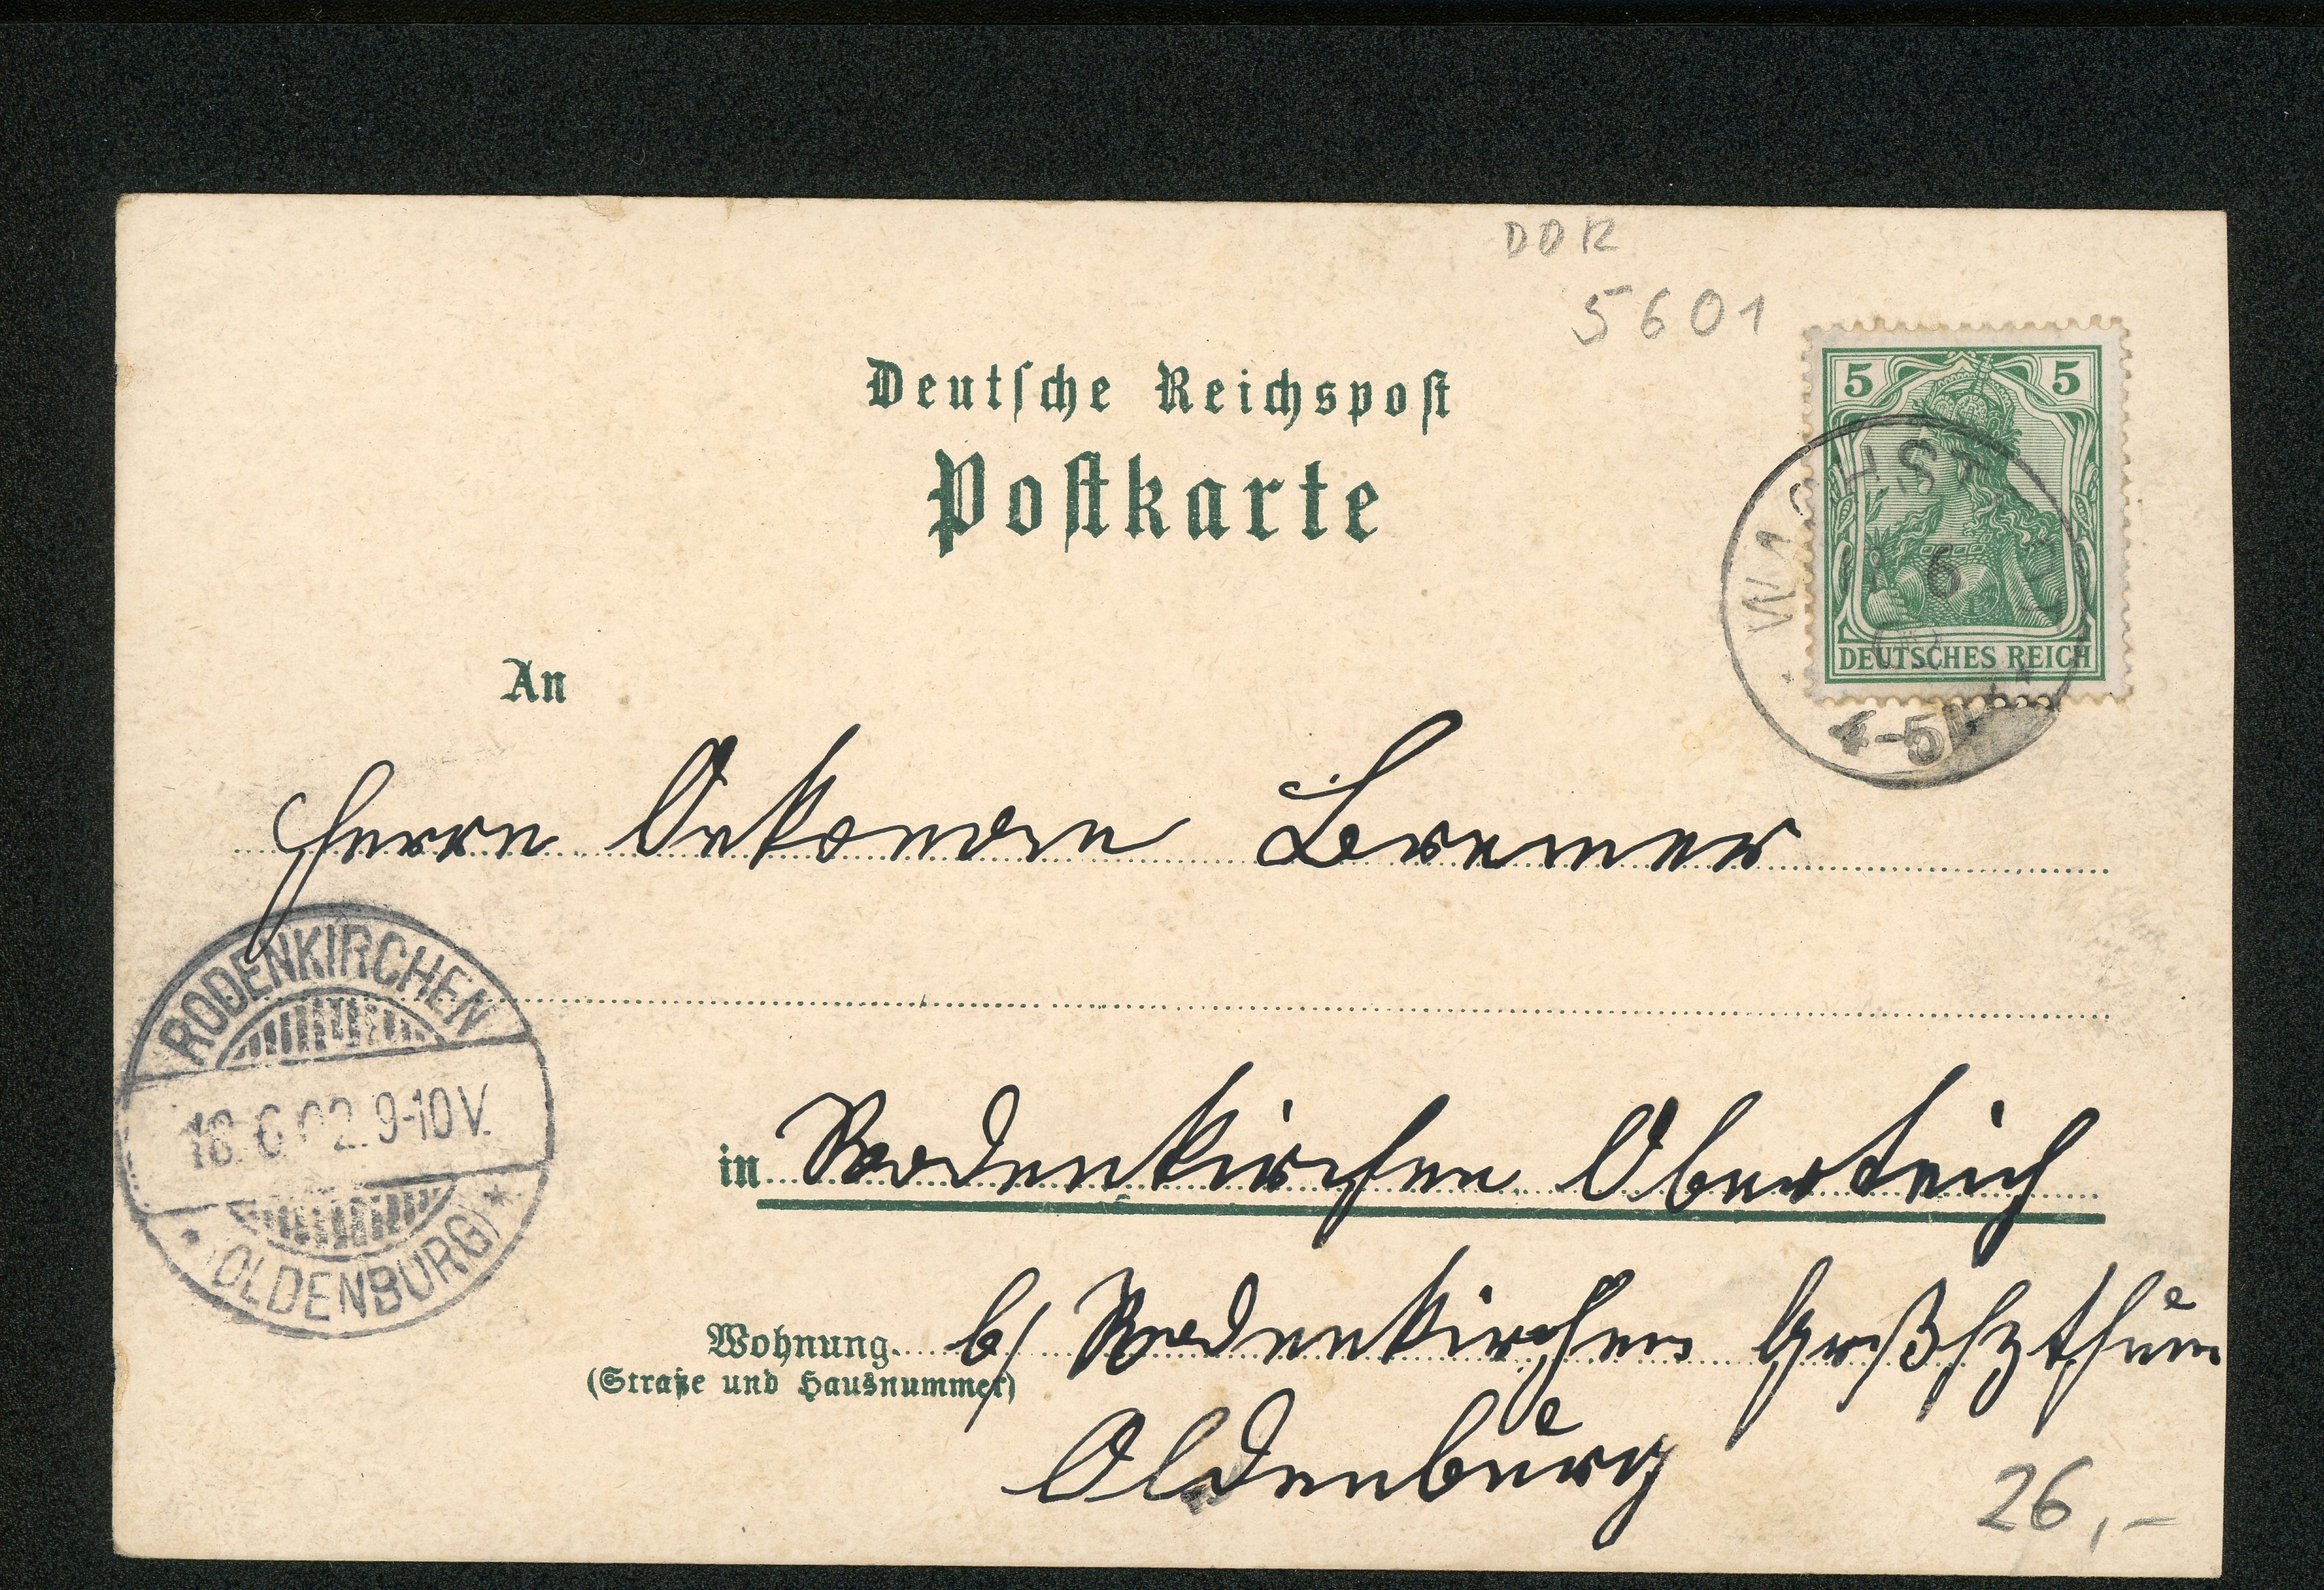 DDR
5601
Deutsche Reichspost
Postkarte
5 5
DEUTSCHES REICH
WACHST
6
4-5N
An
Herrn Oekonom Bremer
RODENKIRCHEN
18.6.02.9-10V.
* (OLDENBURG) *
in Rodenkirchen Oberdeich
Wohnung b/ Rodenkirchen Großhzthum
(Straße und Hausnummer)
Oldenburg
26,-